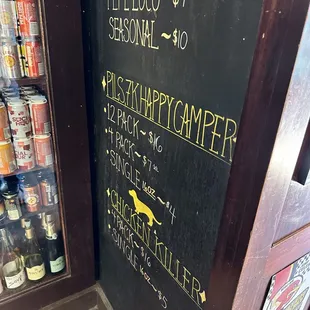 PEPE LOCO ~ $7
SEASONAL ~ $10
PILS, 7K, HAPPY CAMPER
12 PACK ~ $16
4 PACK ~ $7
SINGLE 16oz ~ $4
CHICKEN KILLER
PACK ~ $16
SINGLE 16oz ~ $5